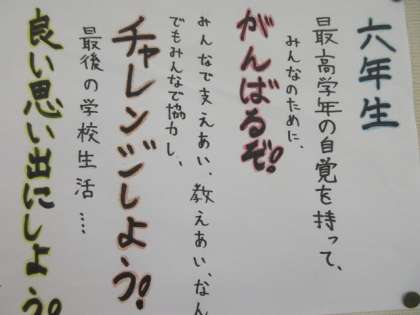 六年生
最高学年の自覚を持って、
みんなのために、
がんばるぞ!
みんなで支えあい、教えあい、なん
でもみんなで協力し、
チャレンジしよう!
最後の学校生活…
良い思い出にしよう!